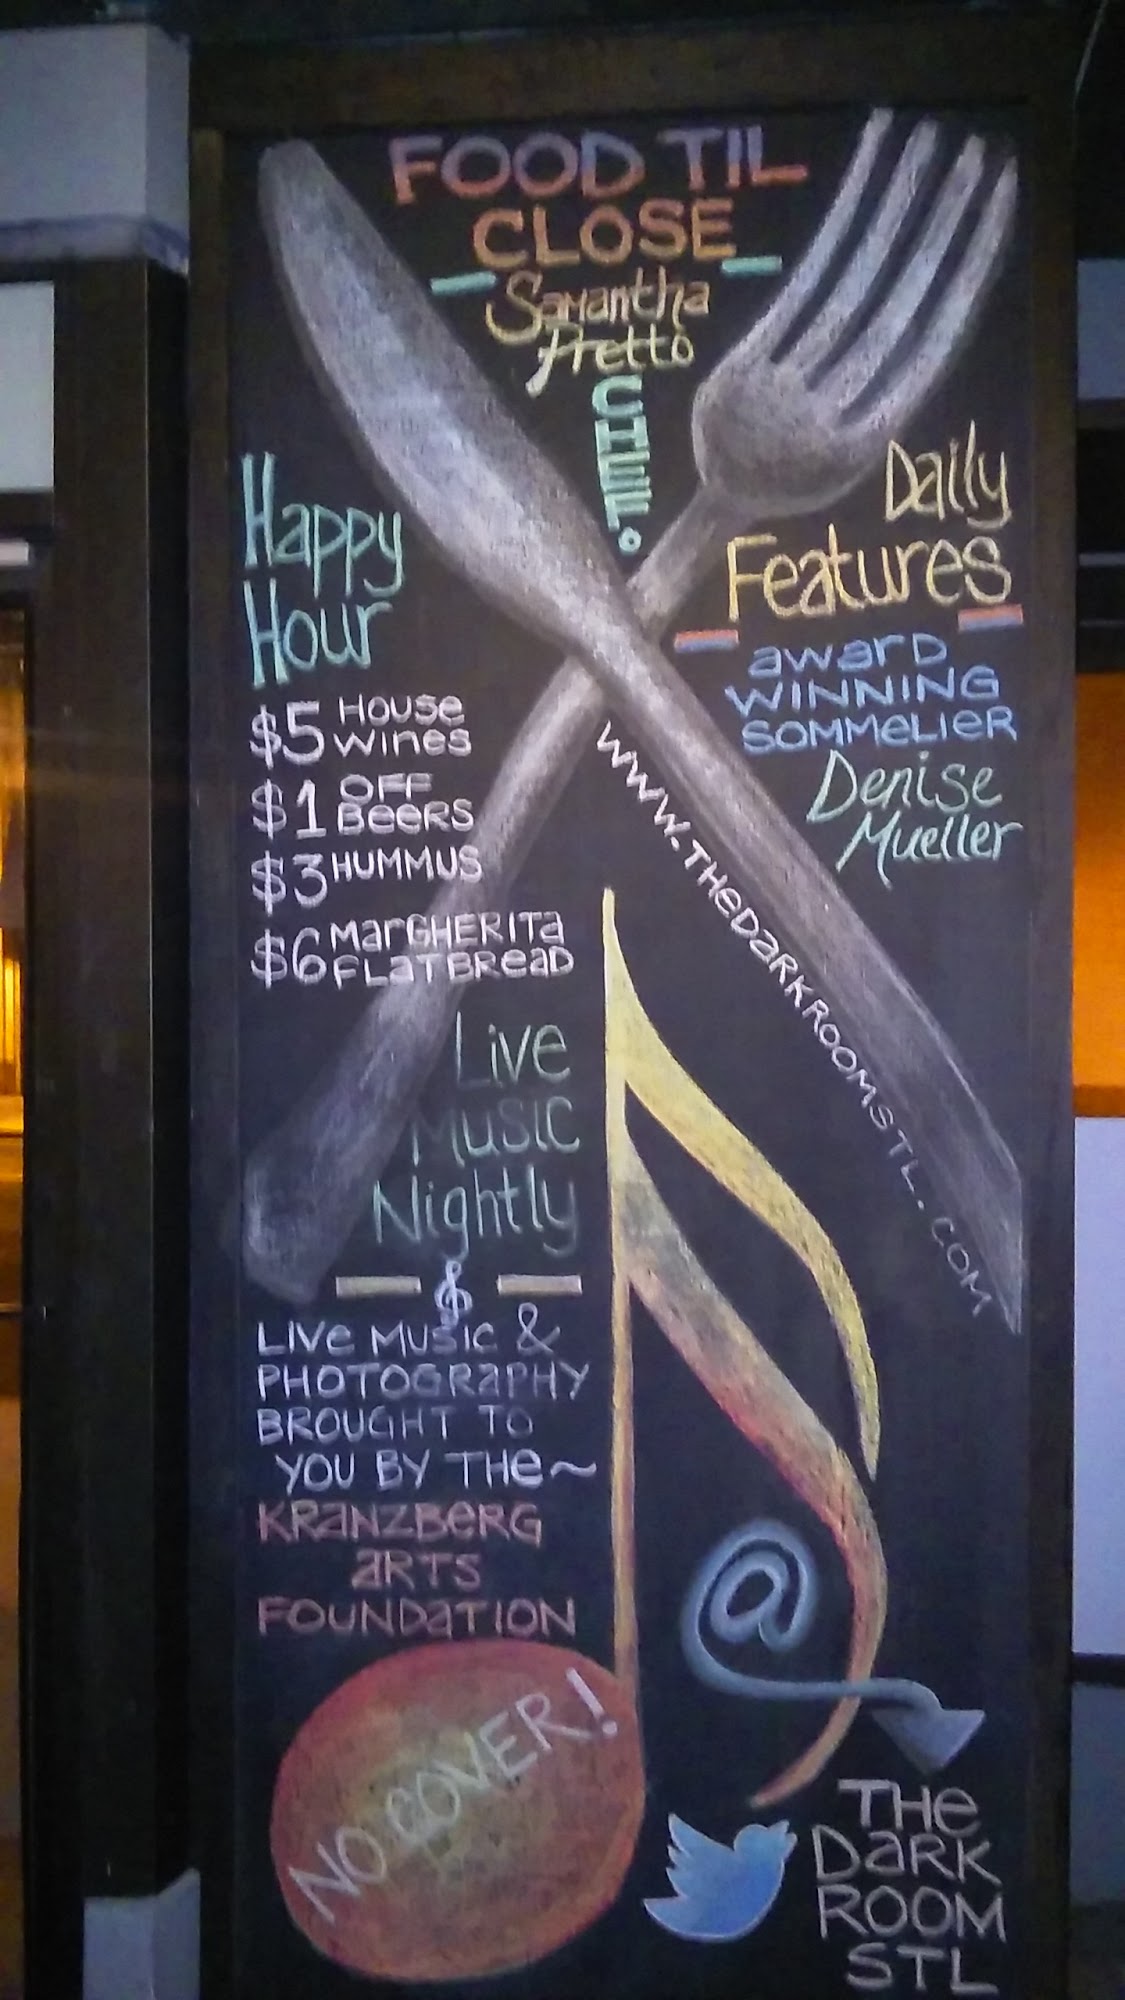 FOOD TIL
CLOSE
Samantha
Pretto
CHEF.
Happy
Hour
$5 HOUSE
WINES
$1 OFF
BEERS
$3 HUMMUS
$6 MARGHERITA
FLATBREAD
Daily
Features
AWARD
WINNING
SOMMELIER
Denise
Mueller
WWW.THEDARKROOMSTL.COM
Live
Music
Nightly
LIVE MUSIC &
PHOTOGRAPHY
BROUGHT TO
YOU BY THE~
KRANZBERG
ARTS
FOUNDATION
NO COVER!
@
THE
DARK
ROOM
STL